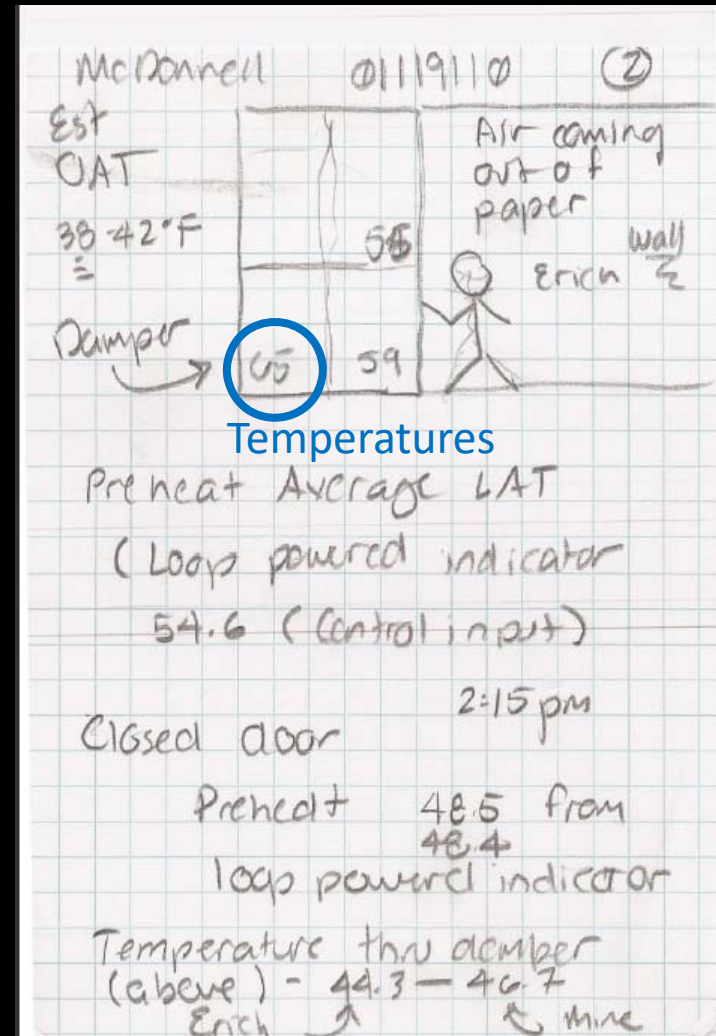 McDonnell 01119110 2
Est
OAT
38-42°F
Air coming
out of
paper
Wall
Erich
Damper
65 59
Temperatures
Preheat Average LAT
(Loop powered indicator
54.6 (Control input)
2:15 pm
Closed door
Preheat 48.5 from
48.4
loop powered indicator
Temperature thru damper
(above) - 44.3 - 46.7
Erich Mine